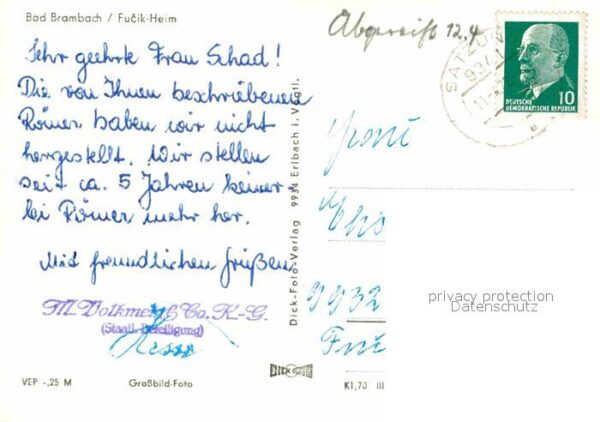 Bad Brambach / Fučik-Heim
Sehr geehrte Frau Schad!
Die von Ihnen beschriebenen
Römer haben wir nicht
hergestellt. Wir stellen
seit ca. 5 Jahren keiner-
lei Römer mehr her.
Mit freundlichen Grüßen
M. Volkmer & Co. K.-G.
(Staatl. Beteiligung)
VEP -,25 M
Großbild-Foto
Dick-Foto-Verlag 9934 Erlbach i. Vogtl.
DICK
K1,70 III
12.4
DEUTSCHE
DEMOKRATISCHE REPUBLIK
10
SATZUNG
934
Frau
9932
privacy protection
Datenschutz